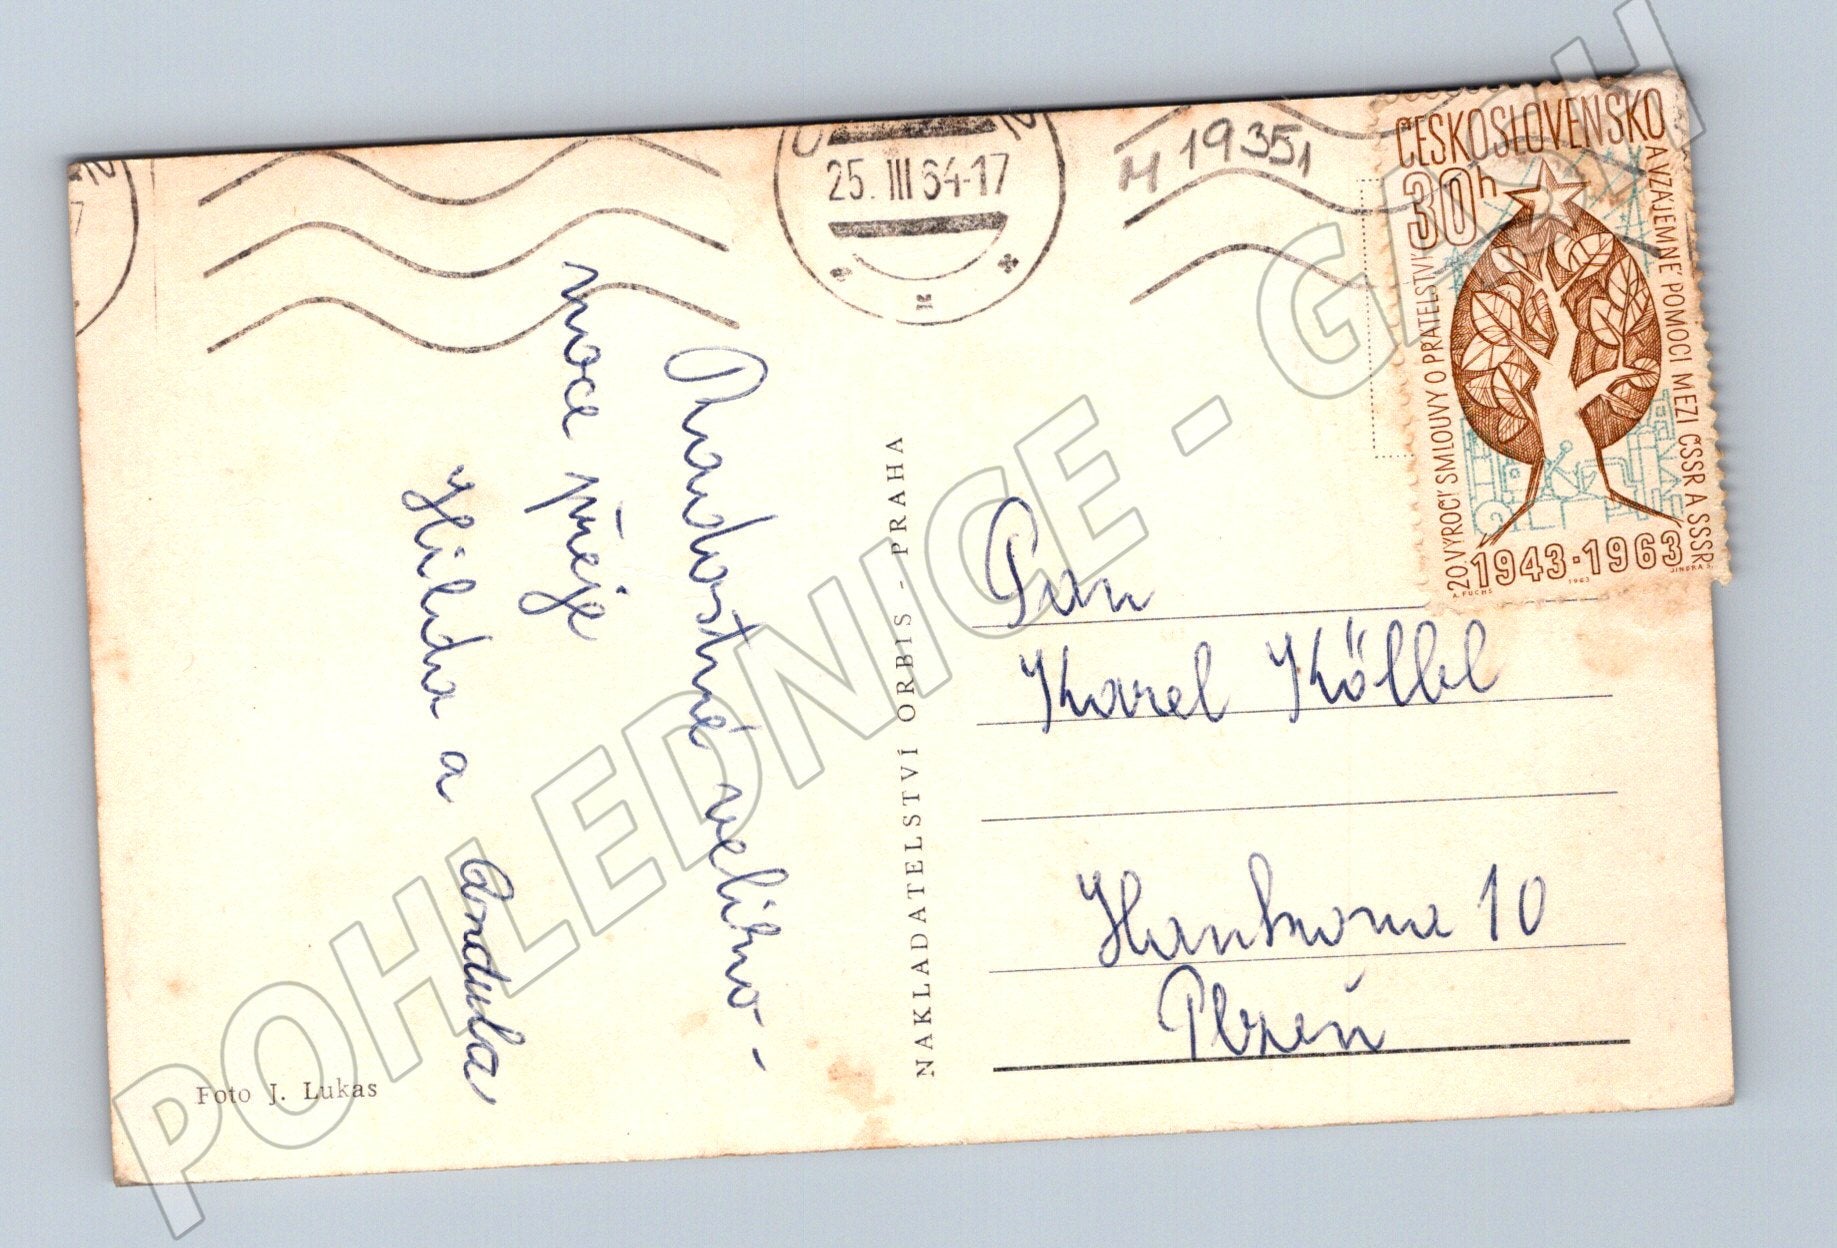 25. III 64-17
M 19351
ČESKOSLOVENSKO
30h
20. VÝROČÍ SMLOUVY O PŘÁTELSTVÍ
A VZÁJEMNÉ POMOCI MEZI ČSSR A SSSR
1943-1963
A. FUCHS
1963
JINDRA S.
Radostné veliko-
noce přeje
Hilda a Andulka
NAKLADATELSTVÍ ORBIS - PRAHA
Pan
Karel Kölbl
Hankova 10
Plzeň
Foto J. Lukas
POHLEDNICE - GASH